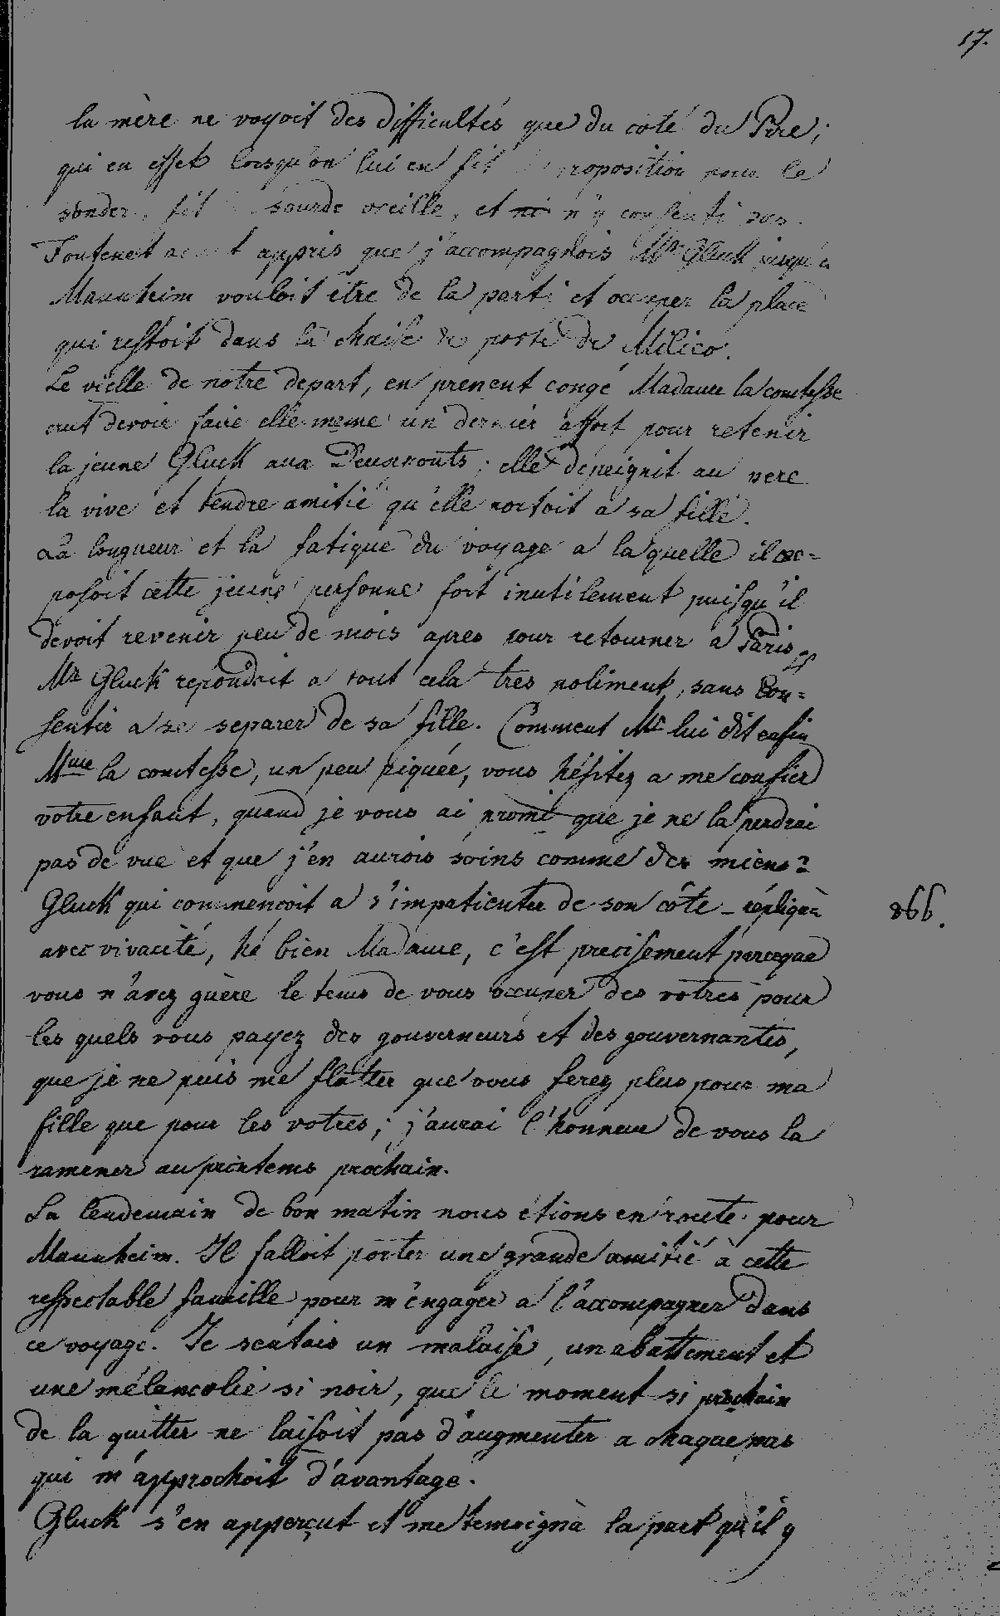 17.
la mère ne voyoit des difficultés que du coté du Père;
qui en effet lorsqu'on lui en fit proposition pour le
sonder, fit sourde oreille, et n'y consenti pas.
Fontenet appris que j'accompagnois Mr Gluck jusqu'a
Mannheim vouloit être de la parti et occuper la place
qui restoit dans la chaise de poste de Milico.
Le vielle de notre depart, en prenent congé Madame la comtesse
crut devoir faire elle meme un dernier effort pour retenir
la jeune Gluck aux Deuxponts; elle depeignit au pere
la vive et tendre amitié qu'elle portoit a sa fille.
La longueur et la fatigue du voyage a laquelle il ex=
posoit cette jeune personne fort inutilement puisqu'il
devoit revenir peu de mois apres pour retourner a Paris
Mr Gluck repondoit a tout cela tres poliment, sans con=
sentir a se separer de sa fille. Comment Mr lui dit enfin
Mme la comtesse, un peu piquée, vous hésitez a me confier
votre enfant, quand je vous ai promi que je ne la perdrai
pas de vue et que j'en aurois soins comme des miens?
Gluck qui commençoit a s'impatienter de son côte repliqua
866.
avec vivacité, hé bien Madame, c'est precisement parceque
vous n'avez guère le tems de vous occuper des votres pour
les quels vous payez des gouverneurs et des gouvernantes,
que je ne puis me flatter que vous ferez plus pour ma
fille que pour les votres; j'aurai l'honneur de vous la
ramener au printems prochain.
La lendemain de bon matin nous etions en route pour
Mannheim. Il falloit porter une grande amitié à cette
respectable famille pour m'engager a l'accompagner dans
ce voyage. Je sentais un malaise, un abattement et
une mélancolie si noir, que le moment si prochain
de la quitter ne laisoit pas d'augmenter a chaque pas
qui m'approchoit d'avantage.
Gluck s'en apperçut et me temoigna la part qu'il y